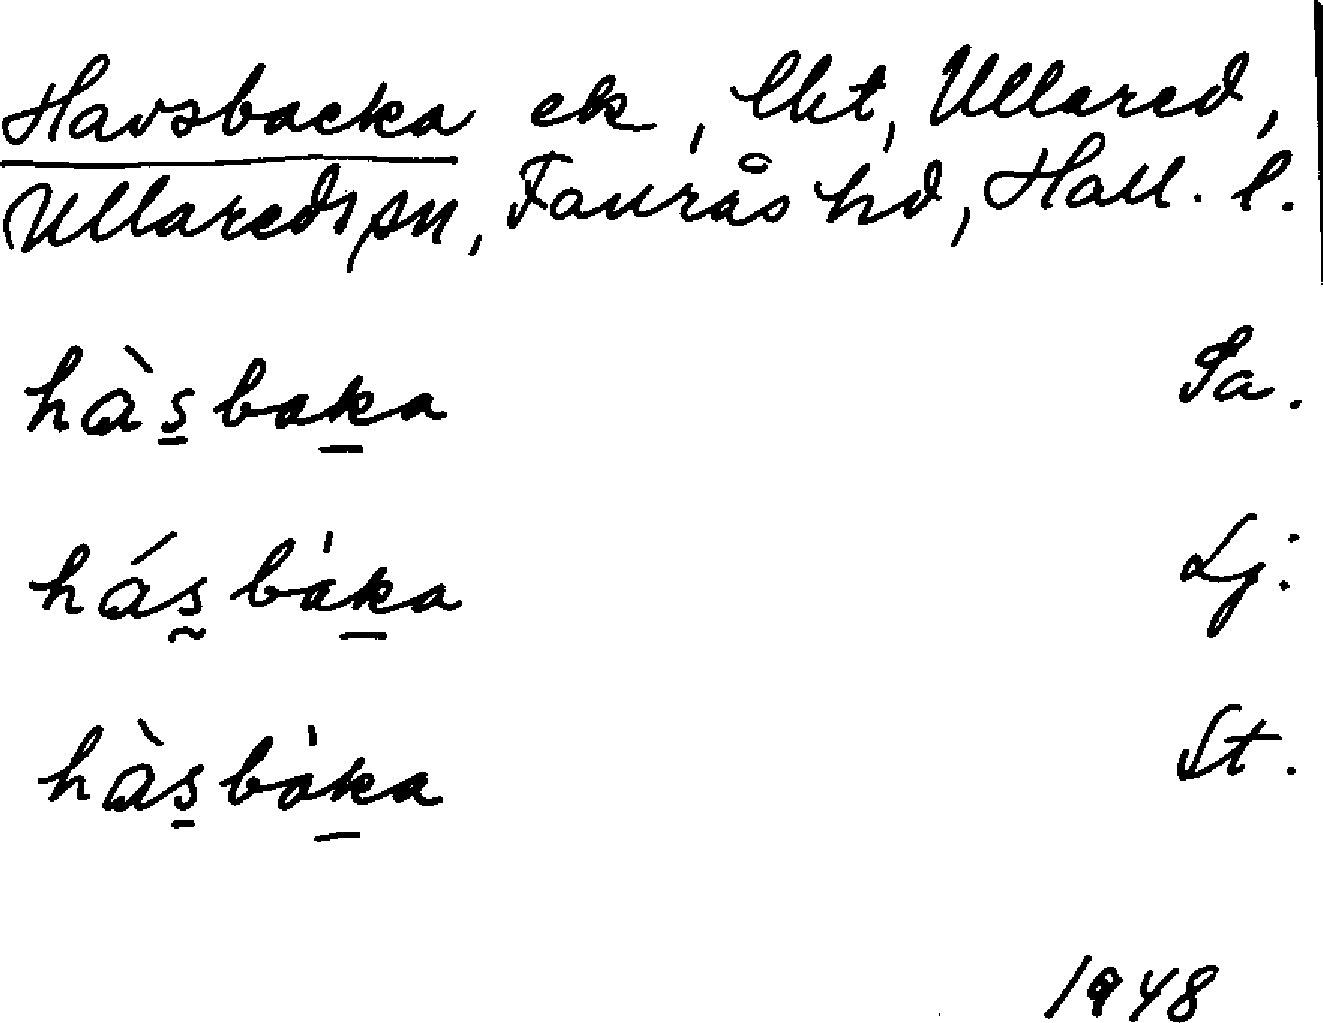 Havsbacka ek, lht, Ullared,
Ullareds sn, Faurås hd, Hall. l.
hàs̱baḵa Sa.
hás̰bàḵa Lj.
hàs̱bàḵa St.
1948